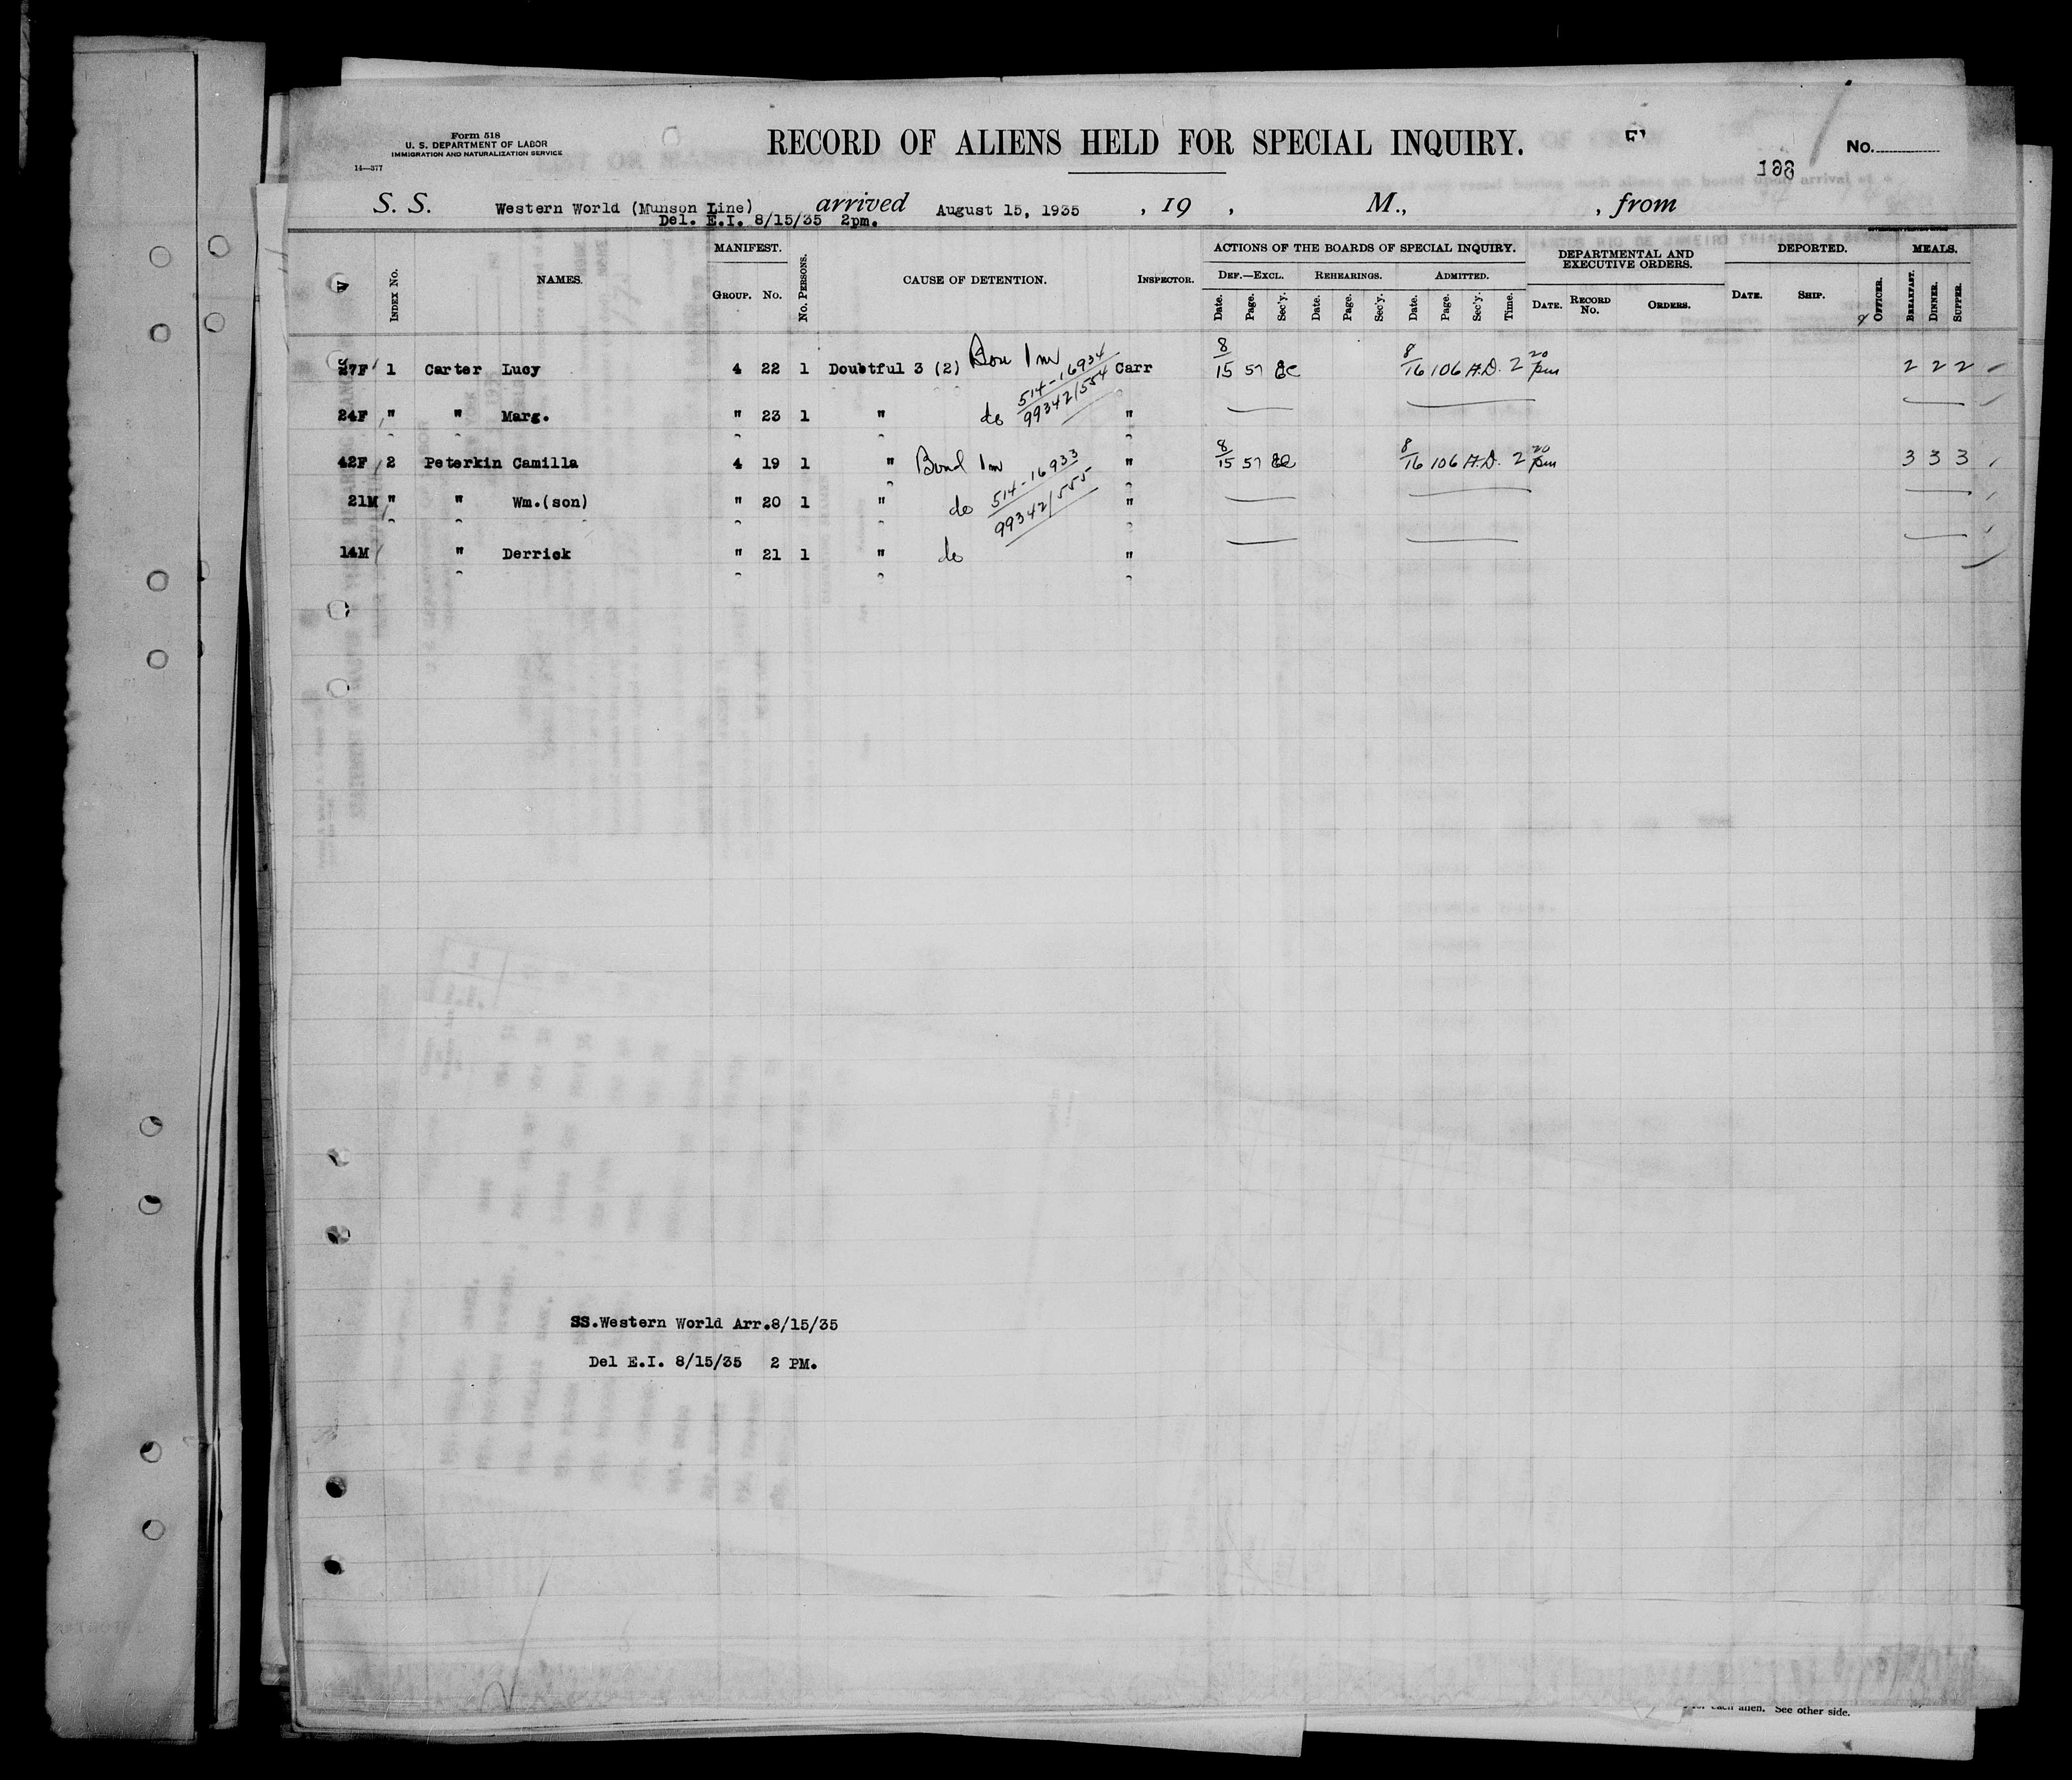 Form 518
U. S. DEPARTMENT OF LABOR
IMMIGRATION AND NATURALIZATION SERVICE
14—377
RECORD OF ALIENS HELD FOR SPECIAL INQUIRY.
No.
S. S. Western World (Munson Line) arrived August 15, 1935 , 19 , M., , from
Del. E.I. 8/15/35 2pm.
INDEX No. NAMES. MANIFEST. GROUP. No. No. PERSONS. CAUSE OF DETENTION. INSPECTOR. ACTIONS OF THE BOARDS OF SPECIAL INQUIRY. DEPARTMENTAL AND EXECUTIVE ORDERS. DEPORTED. MEALS.
DEF.—EXCL. REHEARINGS. ADMITTED.
Date. Page. Sec'y. Date. Page. Sec'y. Date. Page. Sec'y. Time. DATE. RECORD No. ORDERS. DATE. SHIP. OFFICER. BREAKFAST. DINNER. SUPPER.
27F 1 Carter Lucy 4 22 1 Doubtful 3 (2) 514-16934 Carr 8/15 57 8/16 106 A.D. 2 20 pm 2 2 2
24F " " Marg. " 23 1 " do 99342/554 "
42F 2 Peterkin Camilla 4 19 1 " Bond 514-16933 " 8/15 57 8/16 106 A.D. 2 20 pm 3 3 3
21M " " Wm.(son) " 20 1 " do 99342/555 "
14M " Derrick " 21 1 " do "
SS.Western World Arr.8/15/35
Del E.I. 8/15/35 2 PM.
each alien. See other side.